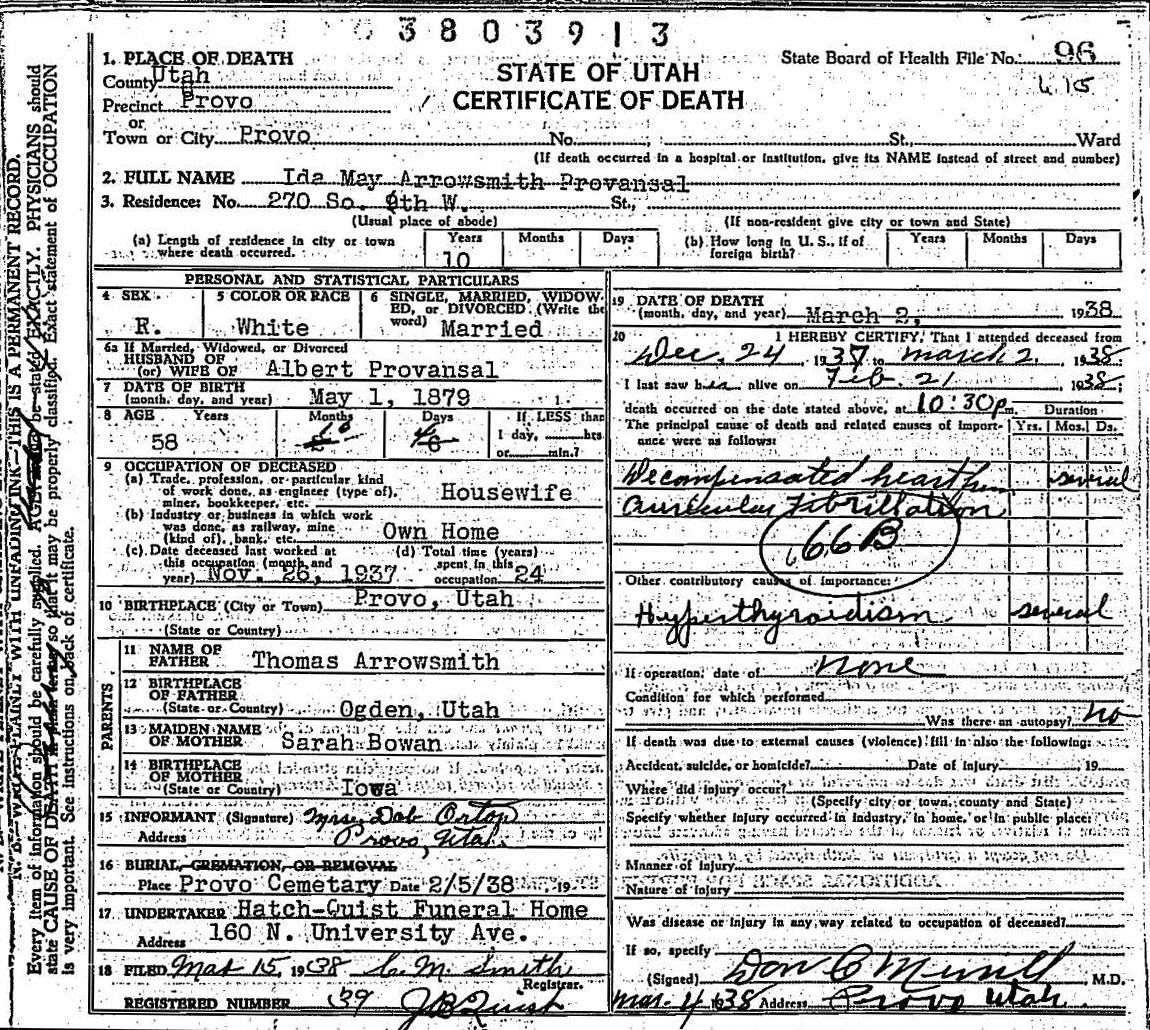 3803913
State Board of Health File No. 96
1. PLACE OF DEATH
County Utah
Precinct Provo
or
Town or City Provo No. St., Ward
STATE OF UTAH
CERTIFICATE OF DEATH
(If death occurred in a hospital or institution, give its NAME instead of street and number)
2. FULL NAME Ida May Arrowsmith Provansal
3. Residence: No. 270 So. th W. St.,
(Usual place of abode) (If non-resident give city or town and State)
(a) Length of residence in city or town where death occurred. Years 10 Months Days
(b) How long in U. S., if of foreign birth? Years Months Days
PERSONAL AND STATISTICAL PARTICULARS
4 SEX R.
5 COLOR OR RACE White
6 SINGLE, MARRIED, WIDOWED, or DIVORCED. (Write the word) Married
6a If Married, Widowed, or Divorced
HUSBAND OF
(or) WIFE OF Albert Provansal
7 DATE OF BIRTH
(month, day, and year) May 1, 1879
8 AGE Years Months Days If LESS than
58 10 1 day, hrs
or min.?
9 OCCUPATION OF DECEASED
(a) Trade, profession, or particular kind
of work done, as engineer (type of),
miner, bookkeeper, etc. Housewife
(b) Industry or business in which work
was done, as railway, mine
(kind of), bank, etc. Own Home
(c) Date deceased last worked at
this occupation (month and
year) Nov. 26, 1937
(d) Total time (years)
spent in this
occupation 24
10 BIRTHPLACE (City or Town) Provo, Utah
(State or Country)
PARENTS
11 NAME OF
FATHER Thomas Arrowsmith
12 BIRTHPLACE
OF FATHER
(State or Country) Ogden, Utah
13 MAIDEN NAME
OF MOTHER Sarah Bowan
14 BIRTHPLACE
OF MOTHER
(State or Country) Iowa
15 INFORMANT (Signature) Mrs. Dab Orton
Address Provo, Utah.
16 BURIAL, CREMATION, OR REMOVAL
Place Provo Cemetary Date 2/5/38 19
17 UNDERTAKER Hatch-Quist Funeral Home
Address 160 N. University Ave.
18 FILED Mar 15, 1938 C. M. Smith
Registrar.
REGISTERED NUMBER 39 J B Quist
19 DATE OF DEATH
(month, day, and year) March 2, 1938
20 I HEREBY CERTIFY, That I attended deceased from
Dec. 24 1937 to March 2. 1938.
I last saw her alive on Feb. 21 1938;
death occurred on the date stated above, at 10:30 pm. Duration
The principal cause of death and related causes of importance were as follows: Yrs. Mos. Ds.
Decompensated heart several
Auricular Fibrillation
66B
Other contributory causes of importance:
Hyperthyroidism several
If operation, date of none
Condition for which performed
Was there an autopsy? no
If death was due to external causes (violence) fill in also the following:
Accident, suicide, or homicide? Date of injury 19
Where did injury occur?
(Specify city or town, county and State)
Specify whether injury occurred in industry, in home, or in public place:
Manner of injury
Nature of injury
Was disease or injury in any way related to occupation of deceased?
If so, specify
(Signed) Don C Merrill M.D.
Mar. 4 1938 Address Provo Utah.
THIS IS A PERMANENT RECORD.
Every item of information should be carefully supplied. AGE should be stated EXACTLY. PHYSICIANS should
state CAUSE OF DEATH in so that it may be properly classified. Exact statement of OCCUPATION
is very important. See instructions on back of certificate.